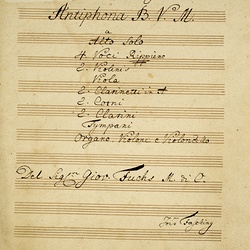 Antiphona B. V. M.
a
Alto Solo
4. Voci Rippieno
2. Violini
Viola
2. Clarinetti in A
2. Corni
2. Clarini
Tympani
Organo, Violone e Violoncello
Del Sigre Giov. Fuchs M. di C.